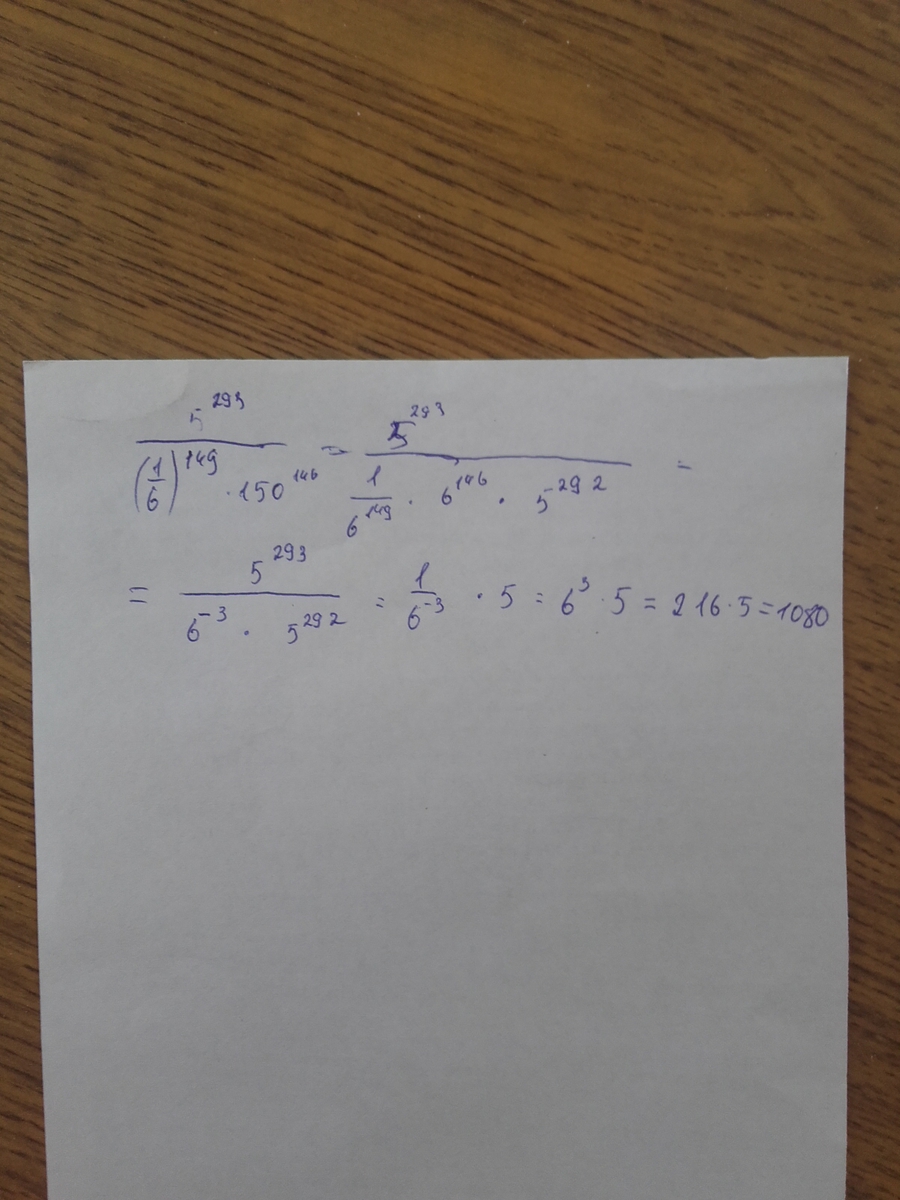 5^293 / ((1/6)^149 · 150^146) = 5^293 / (1/6^149 · 6^146 · 5^292) =
= 5^293 / (6^-3 · 5^292) = 1/6^-3 · 5 = 6^3 · 5 = 216 · 5 = 1080